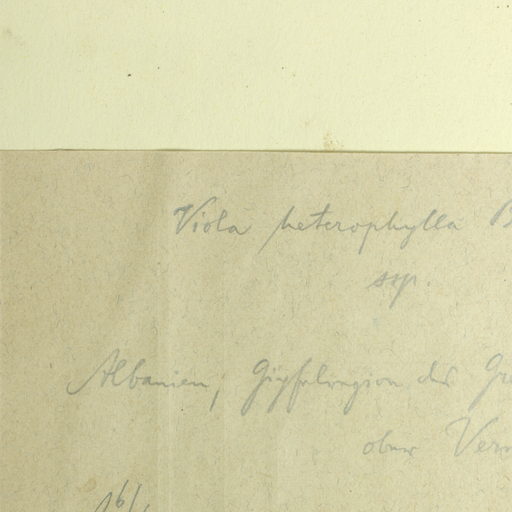 Viola heterophylla
ssp.
Albanien, Gipfelregion der
ober